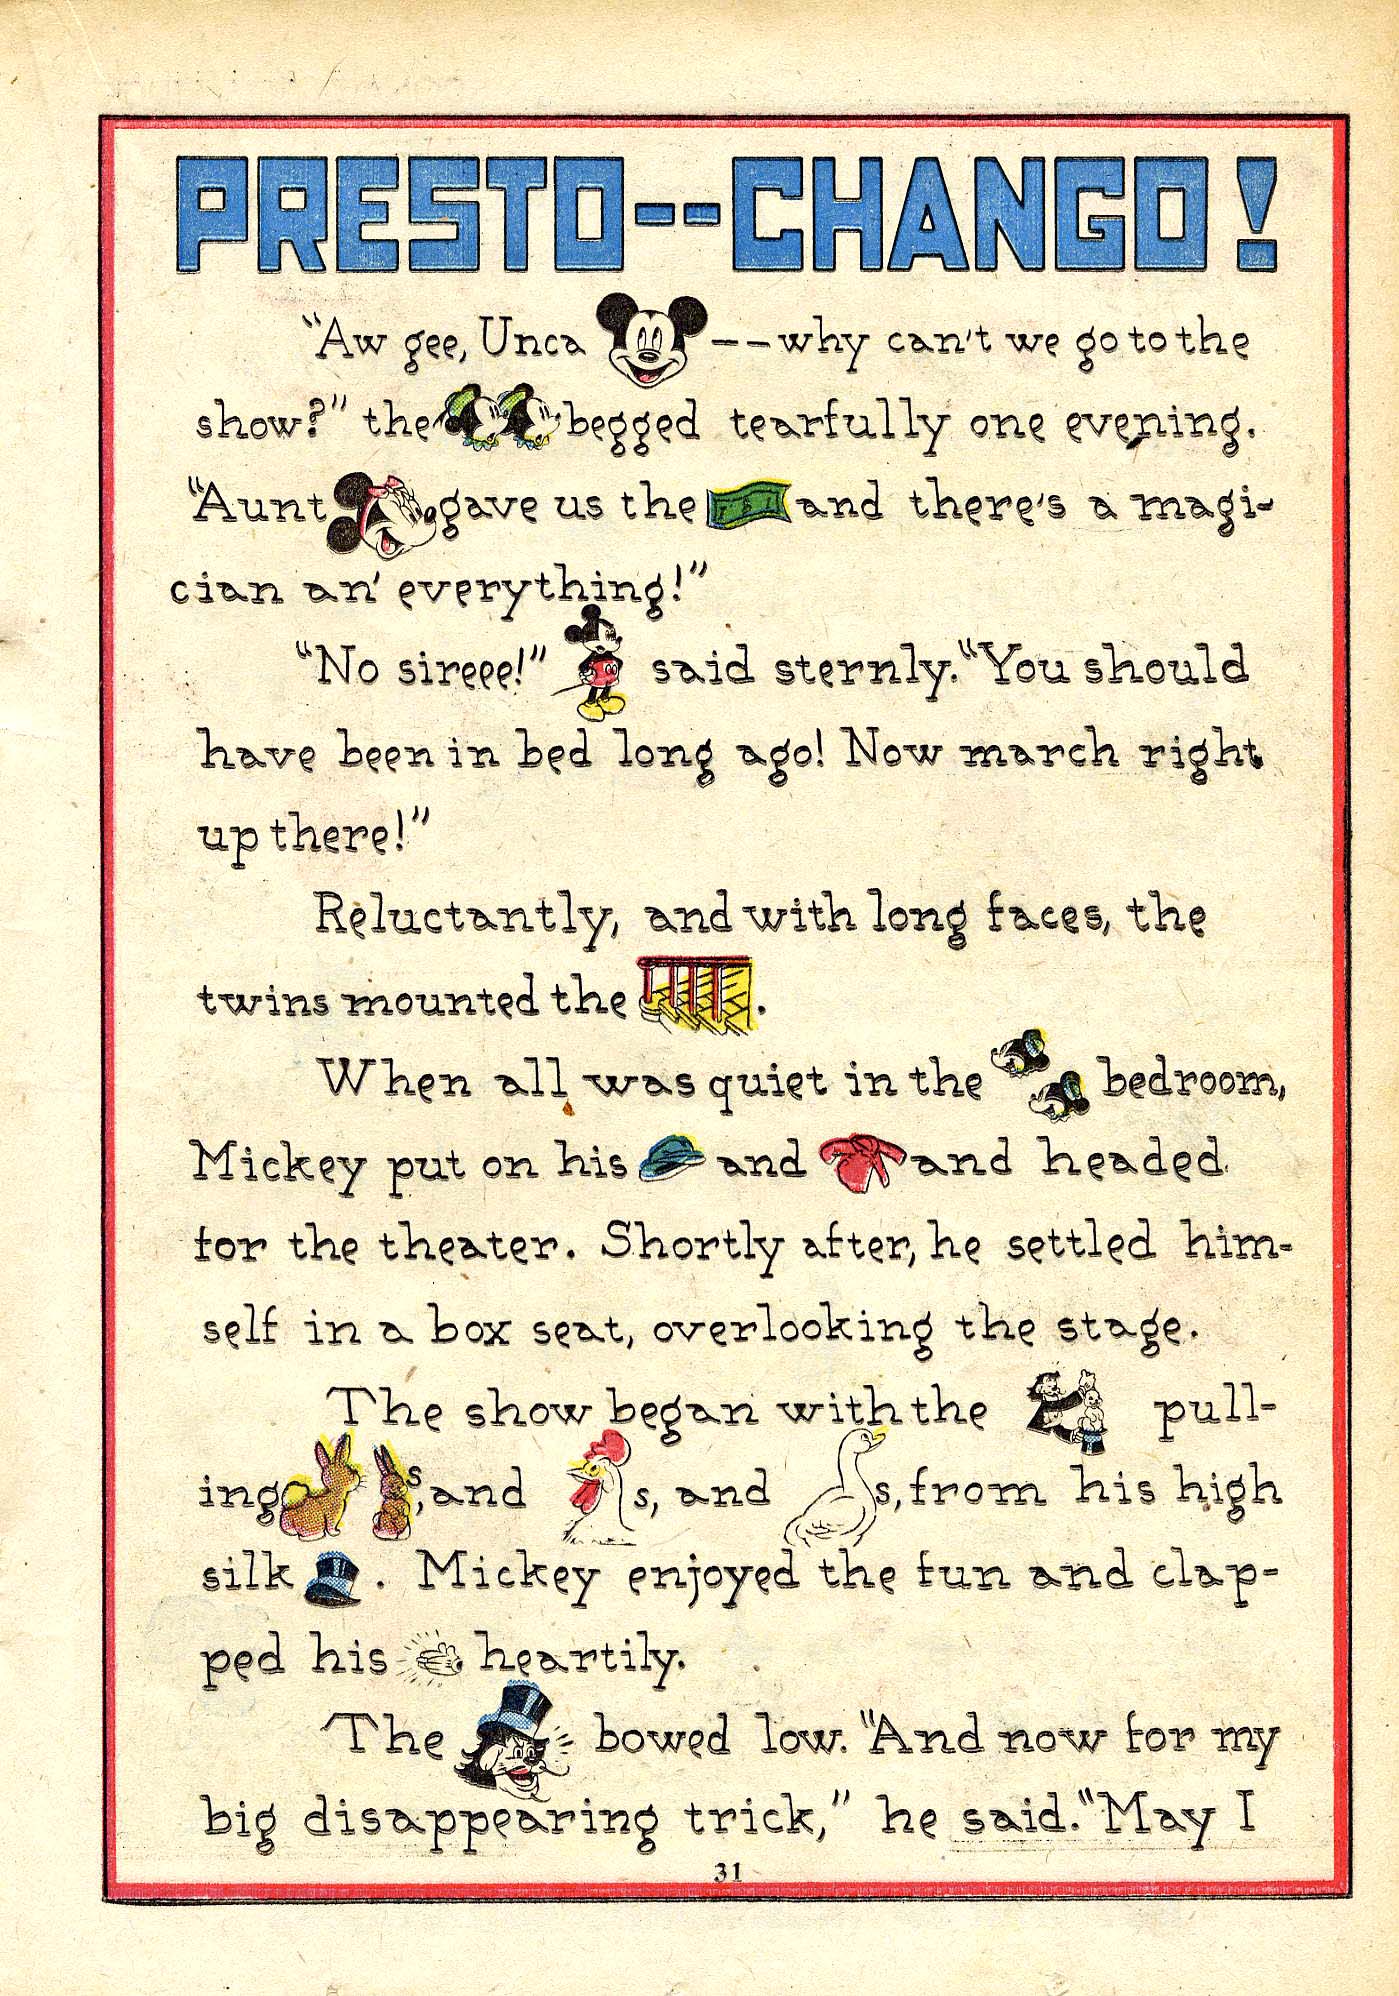 PRESTO--CHANGO!
"Aw gee, Unca -- why can't we go to the
show?" the begged tearfully one evening.
"Aunt gave us the and there's a magi-
cian an' everything!"
"No sireee!" said sternly. "You should
have been in bed long ago! Now march right
up there!"
Reluctantly, and with long faces, the
twins mounted the .
When all was quiet in the bedroom,
Mickey put on his and and headed
for the theater. Shortly after, he settled him-
self in a box seat, overlooking the stage.
The show began with the pull-
ing s, and s, and s, from his high
silk . Mickey enjoyed the fun and clap-
ped his heartily.
The bowed low. "And now for my
big disappearing trick," he said. "May I
31